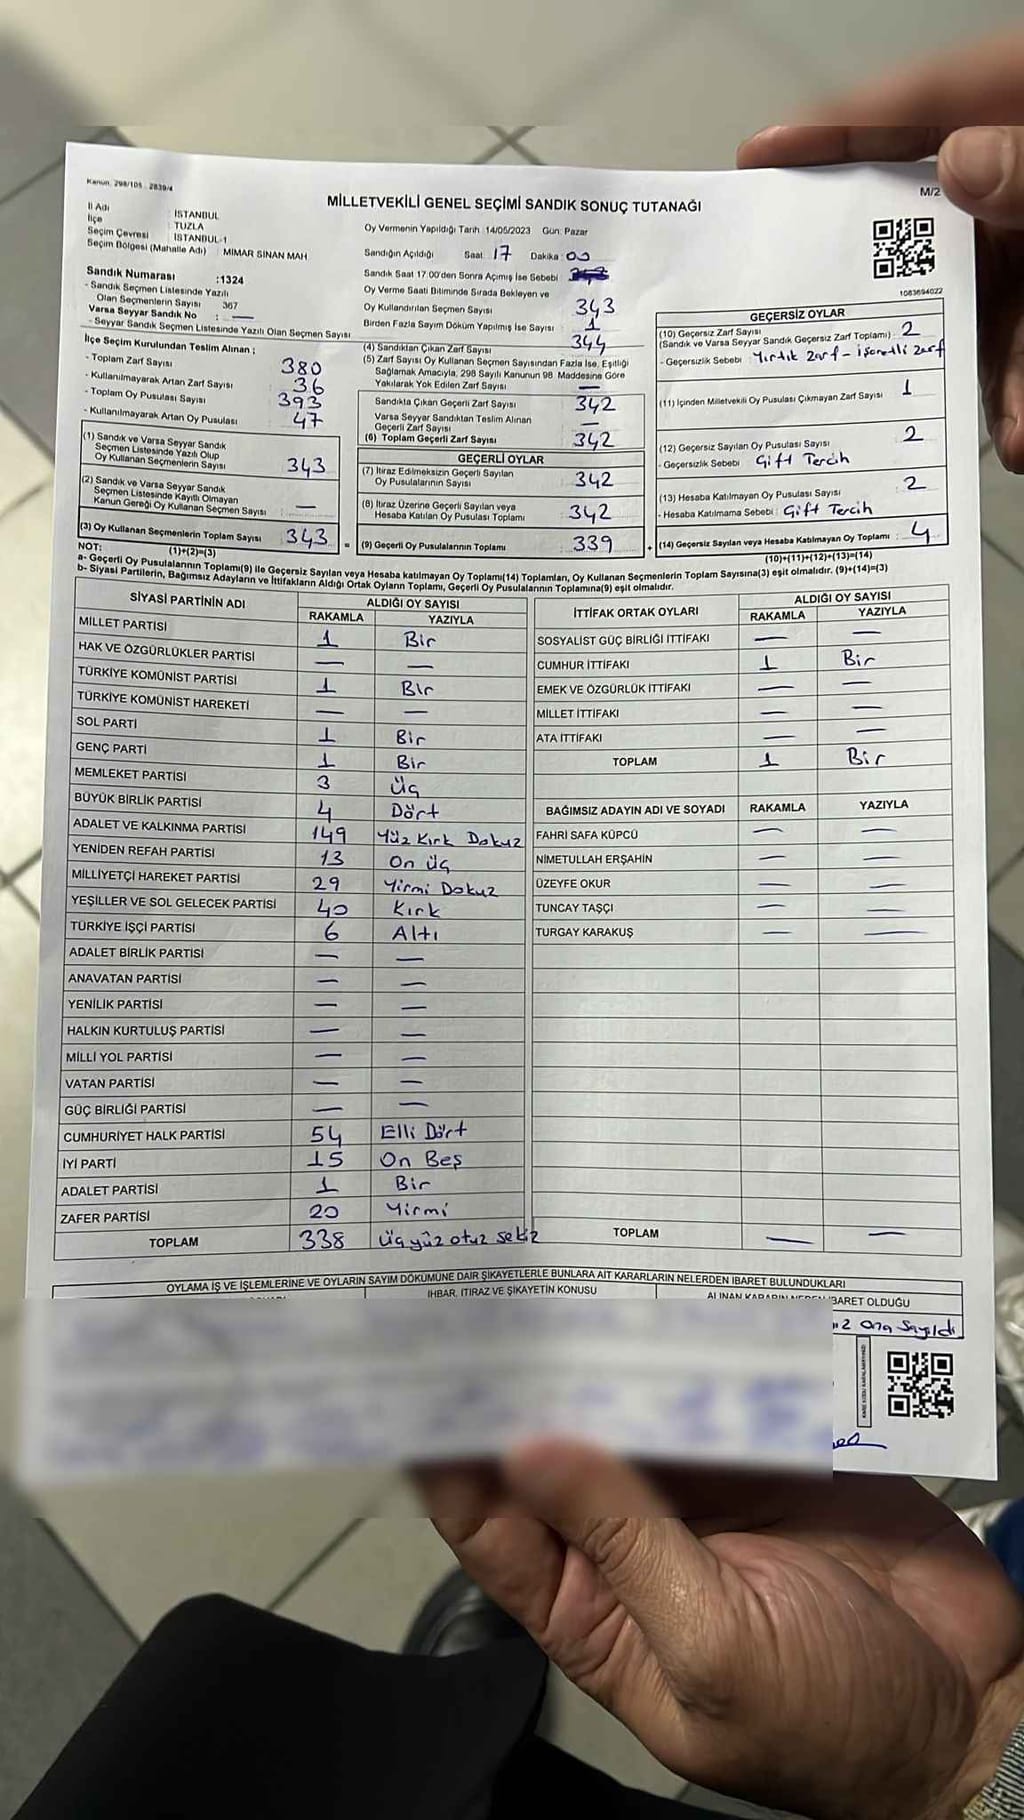 Kanun: 298/105 - 2839/4
M/2
MİLLETVEKİLİ GENEL SEÇİMİ SANDIK SONUÇ TUTANAĞI
İl Adı : İSTANBUL
İlçe : TUZLA
Seçim Çevresi : İSTANBUL-1
Seçim Bölgesi (Mahalle Adı) : MİMAR SİNAN MAH
Sandık Numarası :1324
- Sandık Seçmen Listesinde Yazılı
Olan Seçmenlerin Sayısı : 367
Varsa Seyyar Sandık No : —
- Seyyar Sandık Seçmen Listesinde Yazılı Olan Seçmen Sayısı
İlçe Seçim Kurulundan Teslim Alınan ;
- Toplam Zarf Sayısı 380
- Kullanılmayarak Artan Zarf Sayısı 36
- Toplam Oy Pusulası Sayısı 393
- Kullanılmayarak Artan Oy Pusulası 47
(1) Sandık ve Varsa Seyyar Sandık
Seçmen Listesinde Yazılı Olup
Oy Kullanan Seçmenlerin Sayısı 343
(2) Sandık ve Varsa Seyyar Sandık
Seçmen Listesinde Kayıtlı Olmayan
Kanun Gereği Oy Kullanan Seçmen Sayısı —
(3) Oy Kullanan Seçmenlerin Toplam Sayısı 343
(1)+(2)=(3)
Oy Vermenin Yapıldığı Tarih 14/05/2023 Gün: Pazar
Sandığın Açıldığı Saat 17 Dakika : 00
Sandık Saat 17:00'den Sonra Açılmış İse Sebebi
Oy Verme Saati Bitiminde Sırada Bekleyen ve
Oy Kullandırılan Seçmen Sayısı 343
Birden Fazla Sayım Döküm Yapılmış İse Sayısı 1
(4) Sandıktan Çıkan Zarf Sayısı 344
(5) Zarf Sayısı Oy Kullanan Seçmen Sayısından Fazla İse, Eşitliği
Sağlamak Amacıyla, 298 Sayılı Kanunun 98. Maddesine Göre
Yakılarak Yok Edilen Zarf Sayısı —
Sandıkta Çıkan Geçerli Zarf Sayısı 342
Varsa Seyyar Sandıktan Teslim Alınan
Geçerli Zarf Sayısı —
(6) Toplam Geçerli Zarf Sayısı 342
GEÇERLİ OYLAR
(7) İtiraz Edilmeksizin Geçerli Sayılan
Oy Pusulalarının Sayısı 342
(8) İtiraz Üzerine Geçerli Sayılan veya
Hesaba Katılan Oy Pusulası Toplamı 342
= (9) Geçerli Oy Pusulalarının Toplamı 339 +
1083694022
GEÇERSİZ OYLAR
(10) Geçersiz Zarf Sayısı
(Sandık ve Varsa Seyyar Sandık Geçersiz Zarf Toplamı) : 2
- Geçersizlik Sebebi Yırtık Zarf - işaretli zarf
(11) İçinden Milletvekili Oy Pusulası Çıkmayan Zarf Sayısı 1
(12) Geçersiz Sayılan Oy Pusulası Sayısı 2
- Geçersizlik Sebebi Çift Tercih
(13) Hesaba Katılmayan Oy Pusulası Sayısı 2
- Hesaba Katılmama Sebebi : Çift Tercih
(14) Geçersiz Sayılan veya Hesaba Katılmayan Oy Toplamı : 4
(10)+(11)+(12)+(13)=(14)
NOT:
a- Geçerli Oy Pusulasının Toplamı(9) ile Geçersiz Sayılan veya Hesaba katılmayan Oy Toplamı(14) Toplamları, Oy Kullanan Seçmenlerin Toplam Sayısına(3) eşit olmalıdır. (9)+(14)=(3)
b- Siyasi Partilerin, Bağımsız Adayların ve İttifakların Aldığı Ortak Oyların Toplamı, Geçerli Oy Pusulalarının Toplamına(9) eşit olmalıdır.
SİYASİ PARTİNİN ADI ALDIĞI OY SAYISI
RAKAMLA YAZIYLA
MİLLET PARTİSİ 1 Bir
HAK VE ÖZGÜRLÜKLER PARTİSİ — —
TÜRKİYE KOMÜNİST PARTİSİ 1 Bir
TÜRKİYE KOMÜNİST HAREKETİ — —
SOL PARTİ 1 Bir
GENÇ PARTİ 1 Bir
MEMLEKET PARTİSİ 3 Üç
BÜYÜK BİRLİK PARTİSİ 4 Dört
ADALET VE KALKINMA PARTİSİ 149 Yüz Kırk Dokuz
YENİDEN REFAH PARTİSİ 13 On üç
MİLLİYETÇİ HAREKET PARTİSİ 29 Yirmi Dokuz
YEŞİLLER VE SOL GELECEK PARTİSİ 40 Kırk
TÜRKİYE İŞÇİ PARTİSİ 6 Altı
ADALET BİRLİK PARTİSİ — —
ANAVATAN PARTİSİ — —
YENİLİK PARTİSİ — —
HALKIN KURTULUŞ PARTİSİ — —
MİLLİ YOL PARTİSİ — —
VATAN PARTİSİ — —
GÜÇ BİRLİĞİ PARTİSİ — —
CUMHURİYET HALK PARTİSİ 54 Elli Dört
İYİ PARTİ 15 On Beş
ADALET PARTİSİ 1 Bir
ZAFER PARTİSİ 20 Yirmi
TOPLAM 338 Üç yüz otuz sekiz
İTTİFAK ORTAK OYLARI ALDIĞI OY SAYISI
RAKAMLA YAZIYLA
SOSYALİST GÜÇ BİRLİĞİ İTTİFAKI — —
CUMHUR İTTİFAKI 1 Bir
EMEK VE ÖZGÜRLÜK İTTİFAKI — —
MİLLET İTTİFAKI — —
ATA İTTİFAKI — —
TOPLAM 1 Bir
BAĞIMSIZ ADAYIN ADI VE SOYADI RAKAMLA YAZIYLA
FAHRİ SAFA KÜPCÜ — —
NİMETULLAH ERŞAHİN — —
ÜZEYFE OKUR — —
TUNCAY TAŞÇI — —
TURGAY KARAKUŞ — —
TOPLAM — —
OYLAMA İŞ VE İŞLEMLERİNE VE OYLARIN SAYIM DÖKÜMÜNE DAİR ŞİKAYETLERLE BUNLARA AİT KARARLARIN NELERDEN İBARET BULUNDUKLARI
İHBAR, İTİRAZ VE ŞİKAYETİN KONUSU
ALINAN KARARIN NEDEN İBARET OLDUĞU
Ona Sayıldı